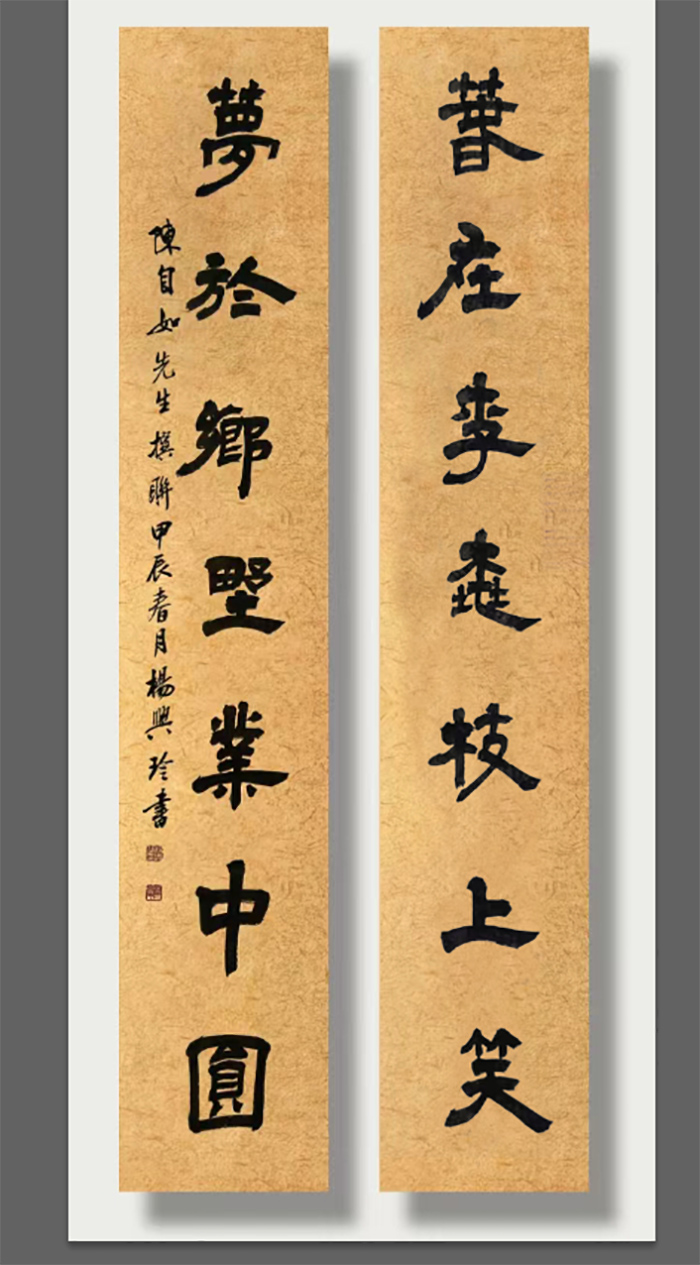 萅在李桃枝上笑
夢於鄉野業中圓
陳自如先生撰聯甲辰春月楊興玲書